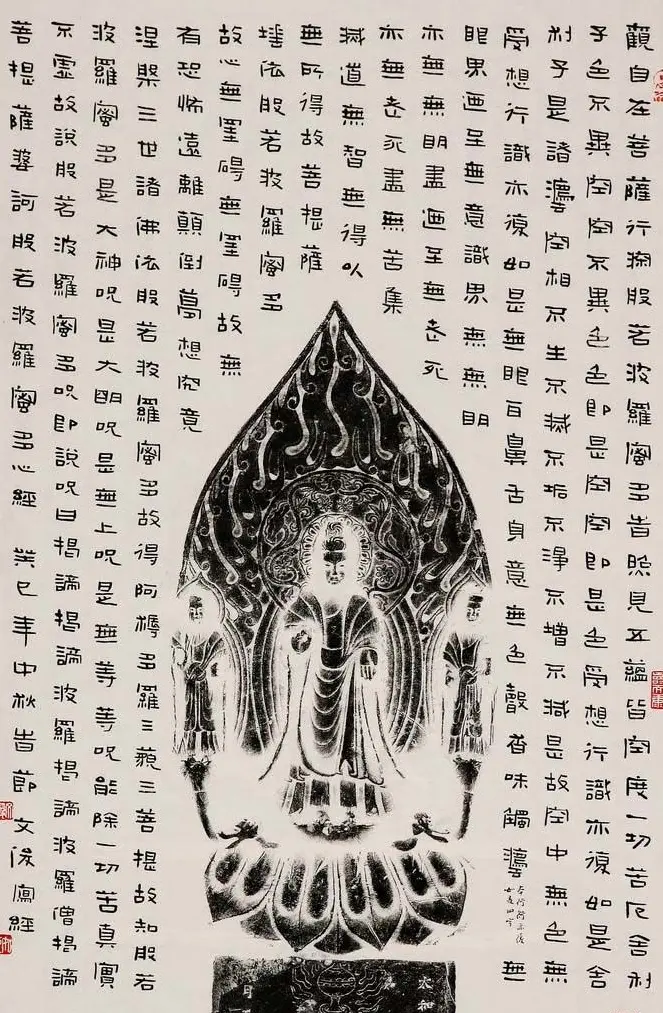 觀自在菩薩行深般若波羅蜜多旹照見五蘊皆空度一切苦厄舍利
子色不異空空不異色色即是空空即是色受想行識亦復如是舍
利子是諸灋空相不生不滅不垢不淨不增不減是故空中無色無
受想行識亦復如是無眼耳鼻舌身意無色聲香味觸灋無
眼界迺至無意識界無無明
亦無無明盡迺至無老死
亦無老死盡無苦集
滅道無智無得以
無所得故菩提薩
埵依般若波羅蜜多
故心無罣礙無罣礙故無
有恐怖遠離顛倒夢想究竟
涅槃三世諸佛依般若波羅蜜多故得阿耨多羅三藐三菩提故知般若
波羅蜜多是大神咒是大明咒是無上咒是無等等咒能除一切苦真實
不虛故說般若波羅蜜多咒即說咒曰揭諦揭諦波羅揭諦波羅僧揭諦
菩提薩婆訶般若波羅蜜多心經 癸巳年中秋旹節 文俊寫經
太和